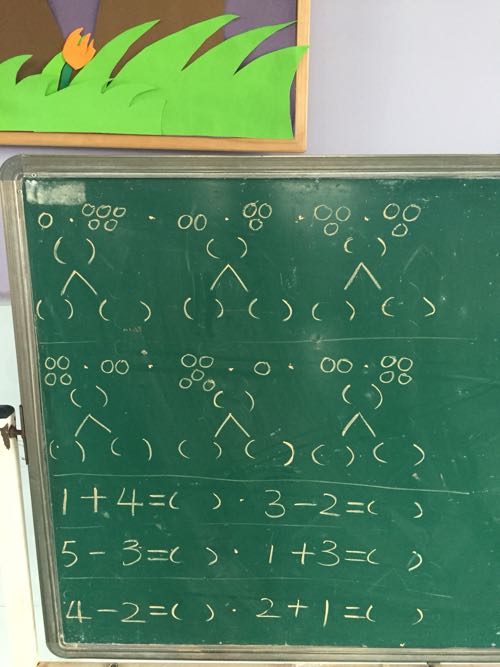 ( ) ( ) ( )
( ) ( ) ( ) ( ) ( ) ( )
( ) ( ) ( )
( ) ( ) ( ) ( ) ( ) ( )
1+4=( ) · 3-2=( )
5-3=( ) · 1+3=( )
4-2=( ) · 2+1=( )